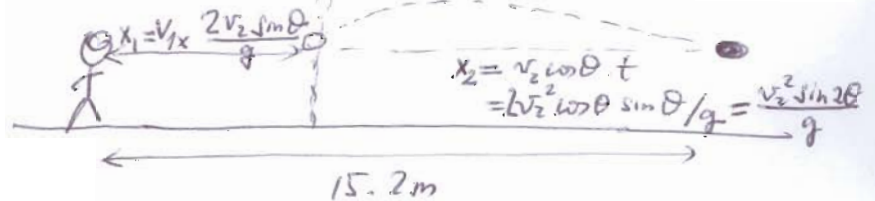 x₁ = v₁ₓ 2v₂ sinθ / g
x₂ = v₂ cosθ t
= 2v₂² cosθ sinθ / g = v₂² sin2θ / g
15.2m